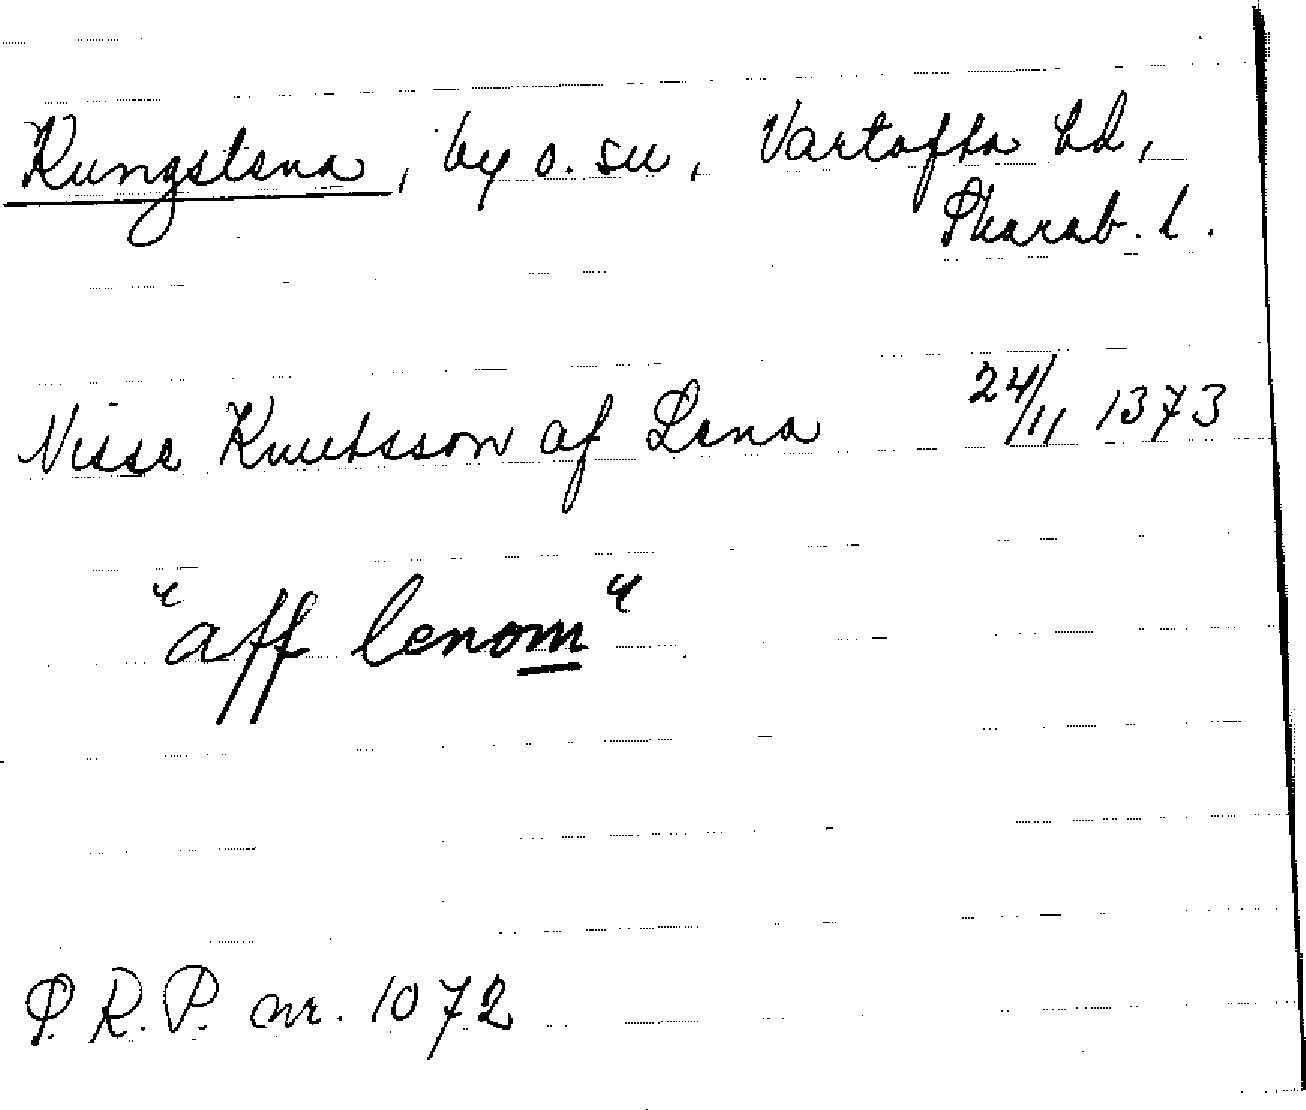 Kungslena, by o. sn, Vartofta hd,
Skarab. l.
Nisse Knutsson af Lena 24/11 1373
"aff lenom"
S.R.P. nr. 1072